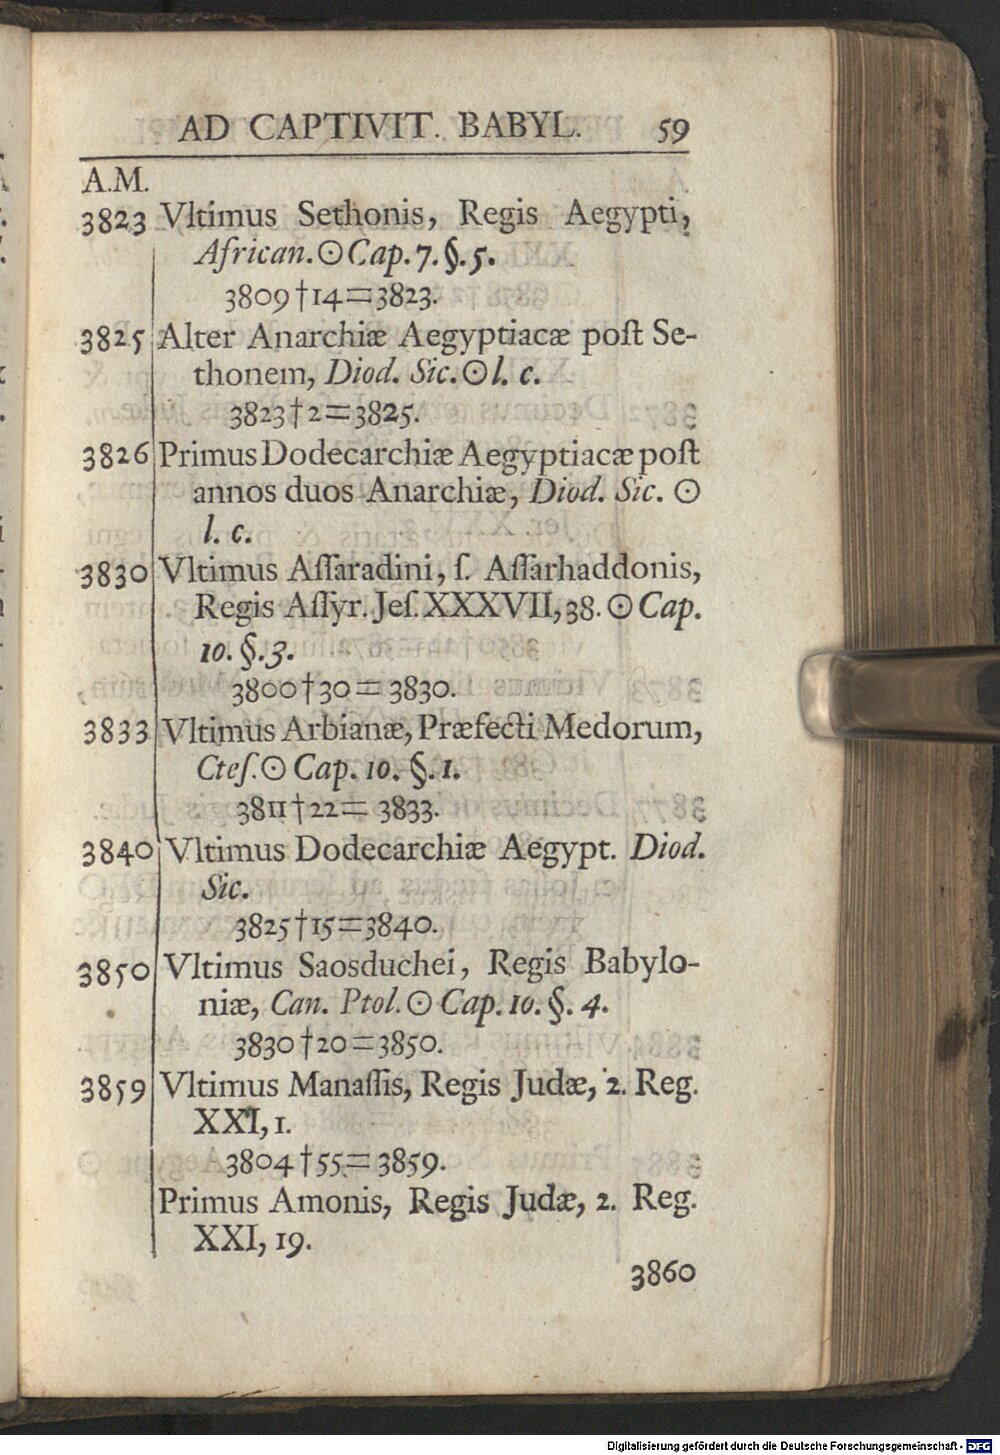 AD CAPTIVIT. BABYL. 59
A.M.
3823 Vltimus Sethonis, Regis Aegypti,
African. ☉ Cap. 7. §. 5.
3809†14=3823.
3825 Alter Anarchiæ Aegyptiacæ poſt Se-
thonem, Diod. Sic. ☉ l. c.
3823†2=3825.
3826 Primus Dodecarchiæ Aegyptiacæ poſt
annos duos Anarchiæ, Diod. Sic. ☉
l. c.
3830 Vltimus Aſſaradini, ſ. Aſſarhaddonis,
Regis Aſſyr. Jeſ. XXXVII, 38. ☉ Cap.
10. §. 3.
3800†30=3830.
3833 Vltimus Arbianæ, Præfecti Medorum,
Cteſ. ☉ Cap. 10. §. 1.
3811†22= 3833.
3840 Vltimus Dodecarchiæ Aegypt. Diod.
Sic.
3825†15=3840.
3850 Vltimus Saosduchei, Regis Babylo-
niæ, Can. Ptol. ☉ Cap. 10. §. 4.
3830†20=3850.
3859 Vltimus Manaſſis, Regis Judæ, 2. Reg.
XXI, 1.
3804†55=3859.
Primus Amonis, Regis Judæ, 2. Reg.
XXI, 19.
3860
Digitalisierung gefördert durch die Deutsche Forschungsgemeinschaft - DFG